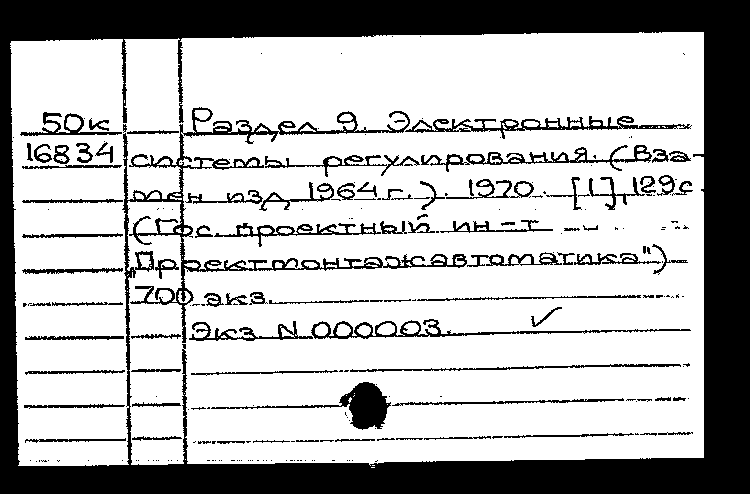 50к Раздел 9. Электронные
16834 системы регулирования. (Вза-
мен изд. 1964 г.). 1970. [1], 129 с.
(Гос. проектный ин-т
"Проектмонтажавтоматика")
700 экз.
Экз. N 000003. ✓